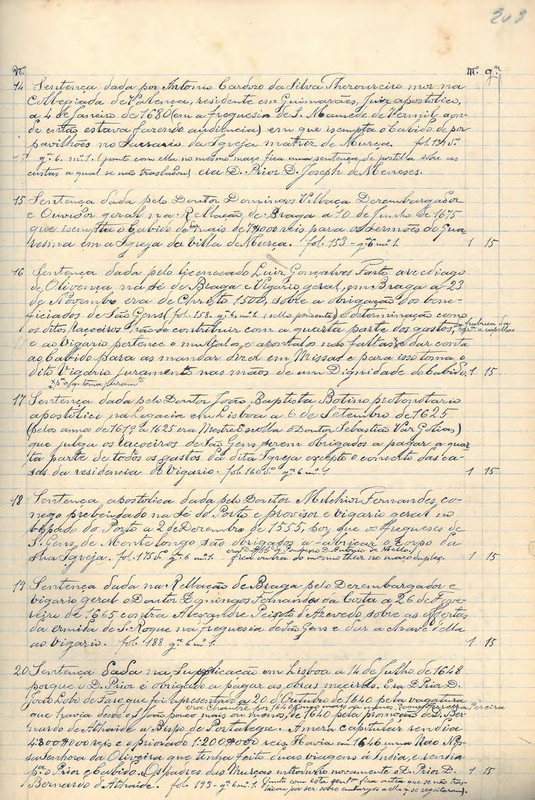 203
nº m. gª
14 Sentença dada por Antonio Cardozo da Silva Thezoureiro mor na
Collegiada de Valença, residente em Guimarães, Juiz apostolico,
a 4 de Janeiro de 1680 (em a freguesia de S. Mamede de Vermil, aon-
de então estava fazendo audiencia) em que isempta o Cabido de por
pavilhões no Sacrario da Igreja matriz de Murça. fol. 145
gª 6. mº 1. (junto com ella no mesmo maço fica uma sentença de sobre as
custas a qual se não trasladou) era D. Prior D. Joseph de Menezes. 1 15
15 Sentença dada pelo Doutor Domingos Villaça Dezembargador
e Ouvidor geral na Rellação de Braga a 10 de Junho de 1675
que isempta o Cabido de mais de reis para os Sermões da Qua-
resma em a Igreja da Villa de Murça. fol. 153 - gª 6 mº 1. 1 15
16 Sentença dada pelo licenceado Luiz Gonçalves Forte arcediago
de Olivença, na Sé de Braga e Vigario geral, em Braga a 23
de Novembro era de Christo 1500, sobre a obrigação dos bene-
ficiados de São Gens (fol. 158. gª 6. mº 1. e determinação como
os ditos Raçoeiros hão de contribuir com a quarta parte dos gastos, da fabrica da
e ao Vigario pertence o multal-os, e apontal-os nas faltas e dar conta
ao Cabido para as mandar dizer em Missas e para isso toma o
dito Vigario juramento nas mãos de um Dignidade do Cabido. 1 15
17 Sentença dada pelo Doutor João Baptista Botino protonotario
apostolico na Legacia em Lisboa a 6 de Setembro de 1625
(pelos annos de 1619 a 1625 era Mestre Escolla o Doutor Sebastião Vaz Golias)
que julga os raçoeiros de São Gens serem obrigados a pagar a quar-
ta parte de todos os gastos da dita Igreja excepto o concerto das ca-
sas da residencia do Vigario. fol. 160 vº gª 6. mº 1 1 15
18 Sentença apostolica dada pelo Doutor Melchior Fernandes, co-
nego prebendado na Sé do Porto e provisor e vigario geral no
bispado do Porto a 2 de Dezembro de 1555, por que os freguezes de
S. Gens de Monte longo são obrigados a fabricar o Corpo da
sua Igreja. fol. 175 vº gª 6 mº 1. fica outra do mesmo theor no maço duplex. 1 15
19 Sentença dada na Rellação de Braga pelo Dezembargador e
vigario geral o Doutor Domingos Fernandes da Costa a 26 de Feve-
reiro de 1665 contra Alexandre Peixoto de Azevedo sobre as offertas
da ermida de S. Roque na freguesia de São Gens e dar a chave d'ella
ao Vigario. fol. 188. gª 6 mº 1 1 15
20 Sentença dada na Supplicação em Lisboa a 14 de Julho de 1648
porque o D. Prior é obrigado a pagar as obras meeiras. Era D. Prior D.
João Lobo de Faro que foi apresentado a 20 d'Outubro de 1640 pela vagatura
que havia desde S. João pouco mais ou menos de 1640 pela promoção de D. Ber-
nardo de Athaide a Bispo de Portalegre. A meza capitular rendia
4:300$000 reis e o priorado 1:200$000 reis. Havia em 1646 uma Nao Nos-
sa Senhora da Oliveira que tinha feito duas viagens da India, e sentia
pª o Prior e Cabido. o D. Prior D. 1 15
Bernardo d'Athaide. fol. 193 - gª 6. mº 1.